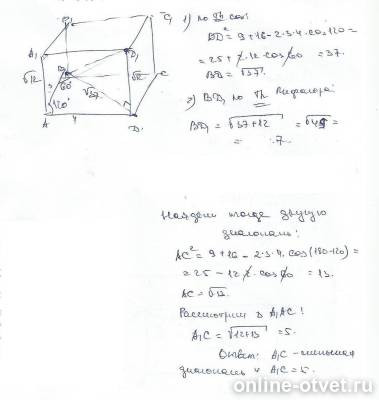 B₁ C₁
A₁ D₁
√12 √12
B 60° C
√37
120°
A 4 D
1) по Th cos:
BD² = 9+16-2·3·4·cos120=
= 25 + 2·12·cos60 = 37.
BD = √37.
2) BD₁ по Th Пифагора:
BD₁ = √37+12 = √49 =
= 7.
Найдем тогда другую
диагональ:
AC² = 9+16 - 2·3·4·cos(180-120)=
= 25 - 12·2·cos60 = 13.
AC = √13.
Рассмотрим Δ A₁AC:
A₁C = √12+13 = 5.
Ответ: A₁C - меньшая
диагональ и A₁C = 5.
online-otvet.ru